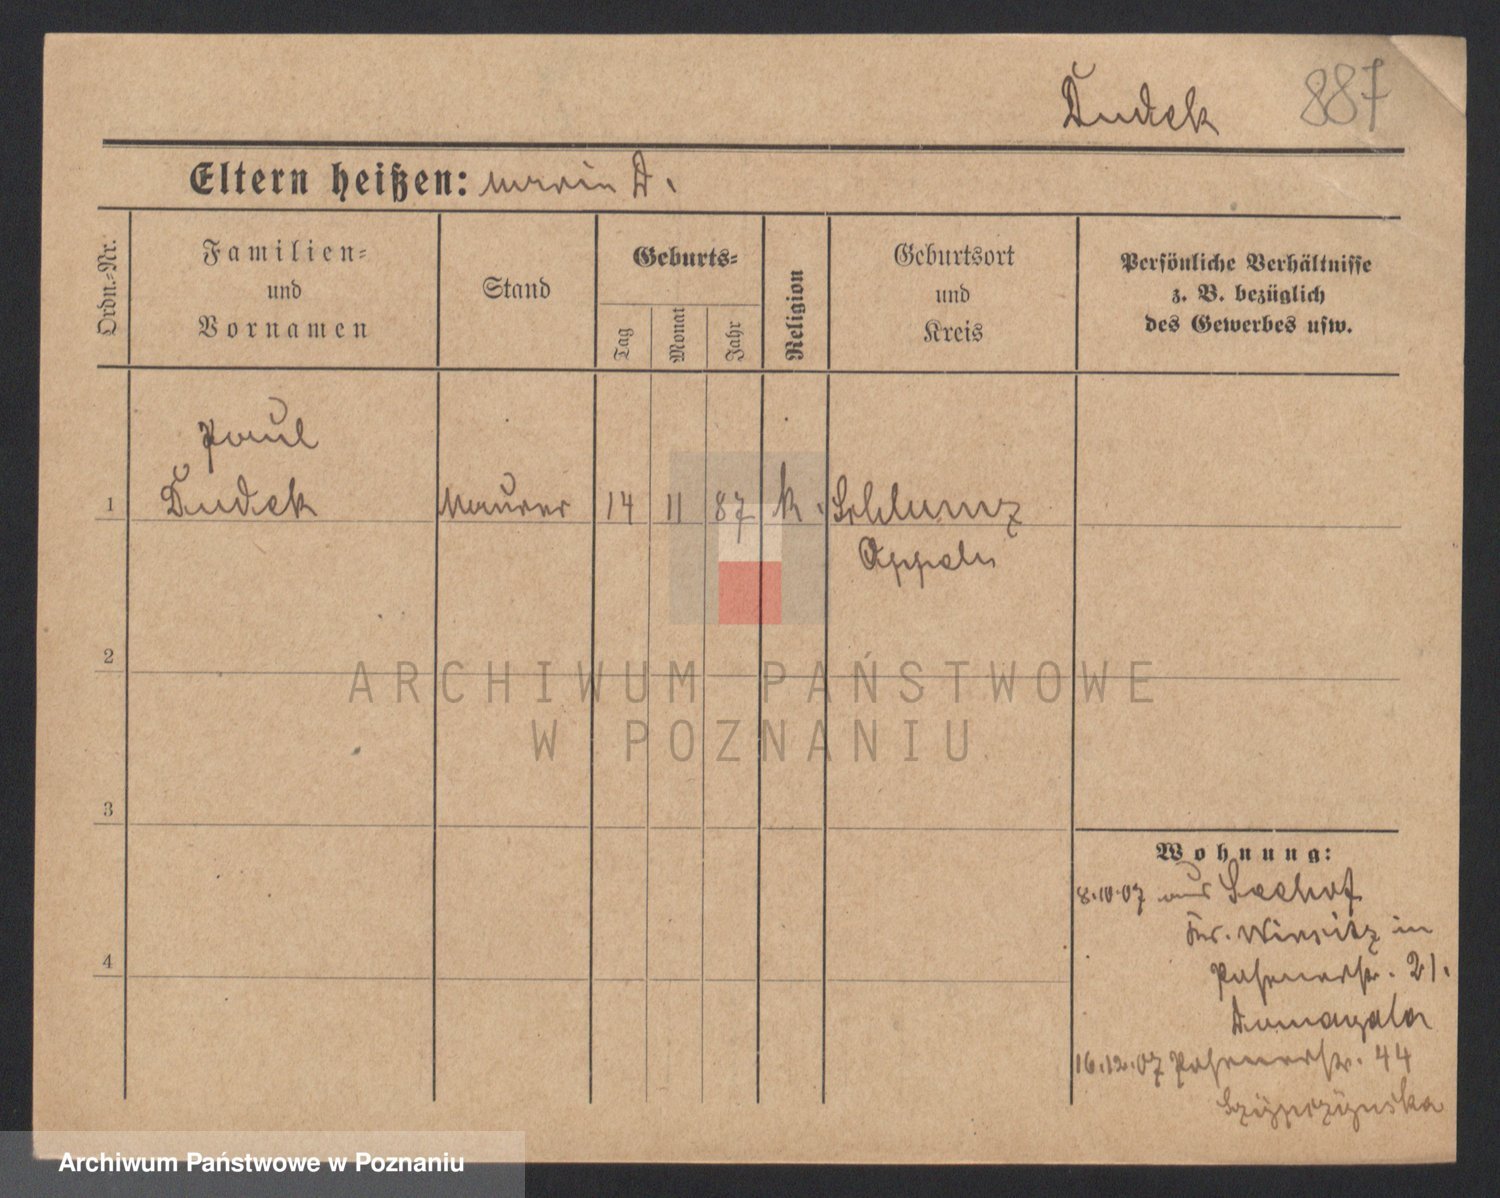 Dudek 887
Eltern heißen: Maria D.
Ordn.-Nr.
Familien-
und
Vornamen
Stand
Geburts-
Tag
Monat
Jahr
Religion
Geburtsort
und
Kreis
Persönliche Verhältnisse
z. B. bezüglich
des Gewerbes usw.
Paul
1 Dudek Maurer 14 11 87 k. Schlumz
Oppeln
2
ARCHIWUM PAŃSTWOWE
W POZNANIU
3
Wohnung:
8.10.07 aus Seehof
Kr. Wirsitz in
4
Posenerstr. 21.
Domagala
16.12.07 Posenerstr. 44
Archiwum Państwowe w Poznaniu